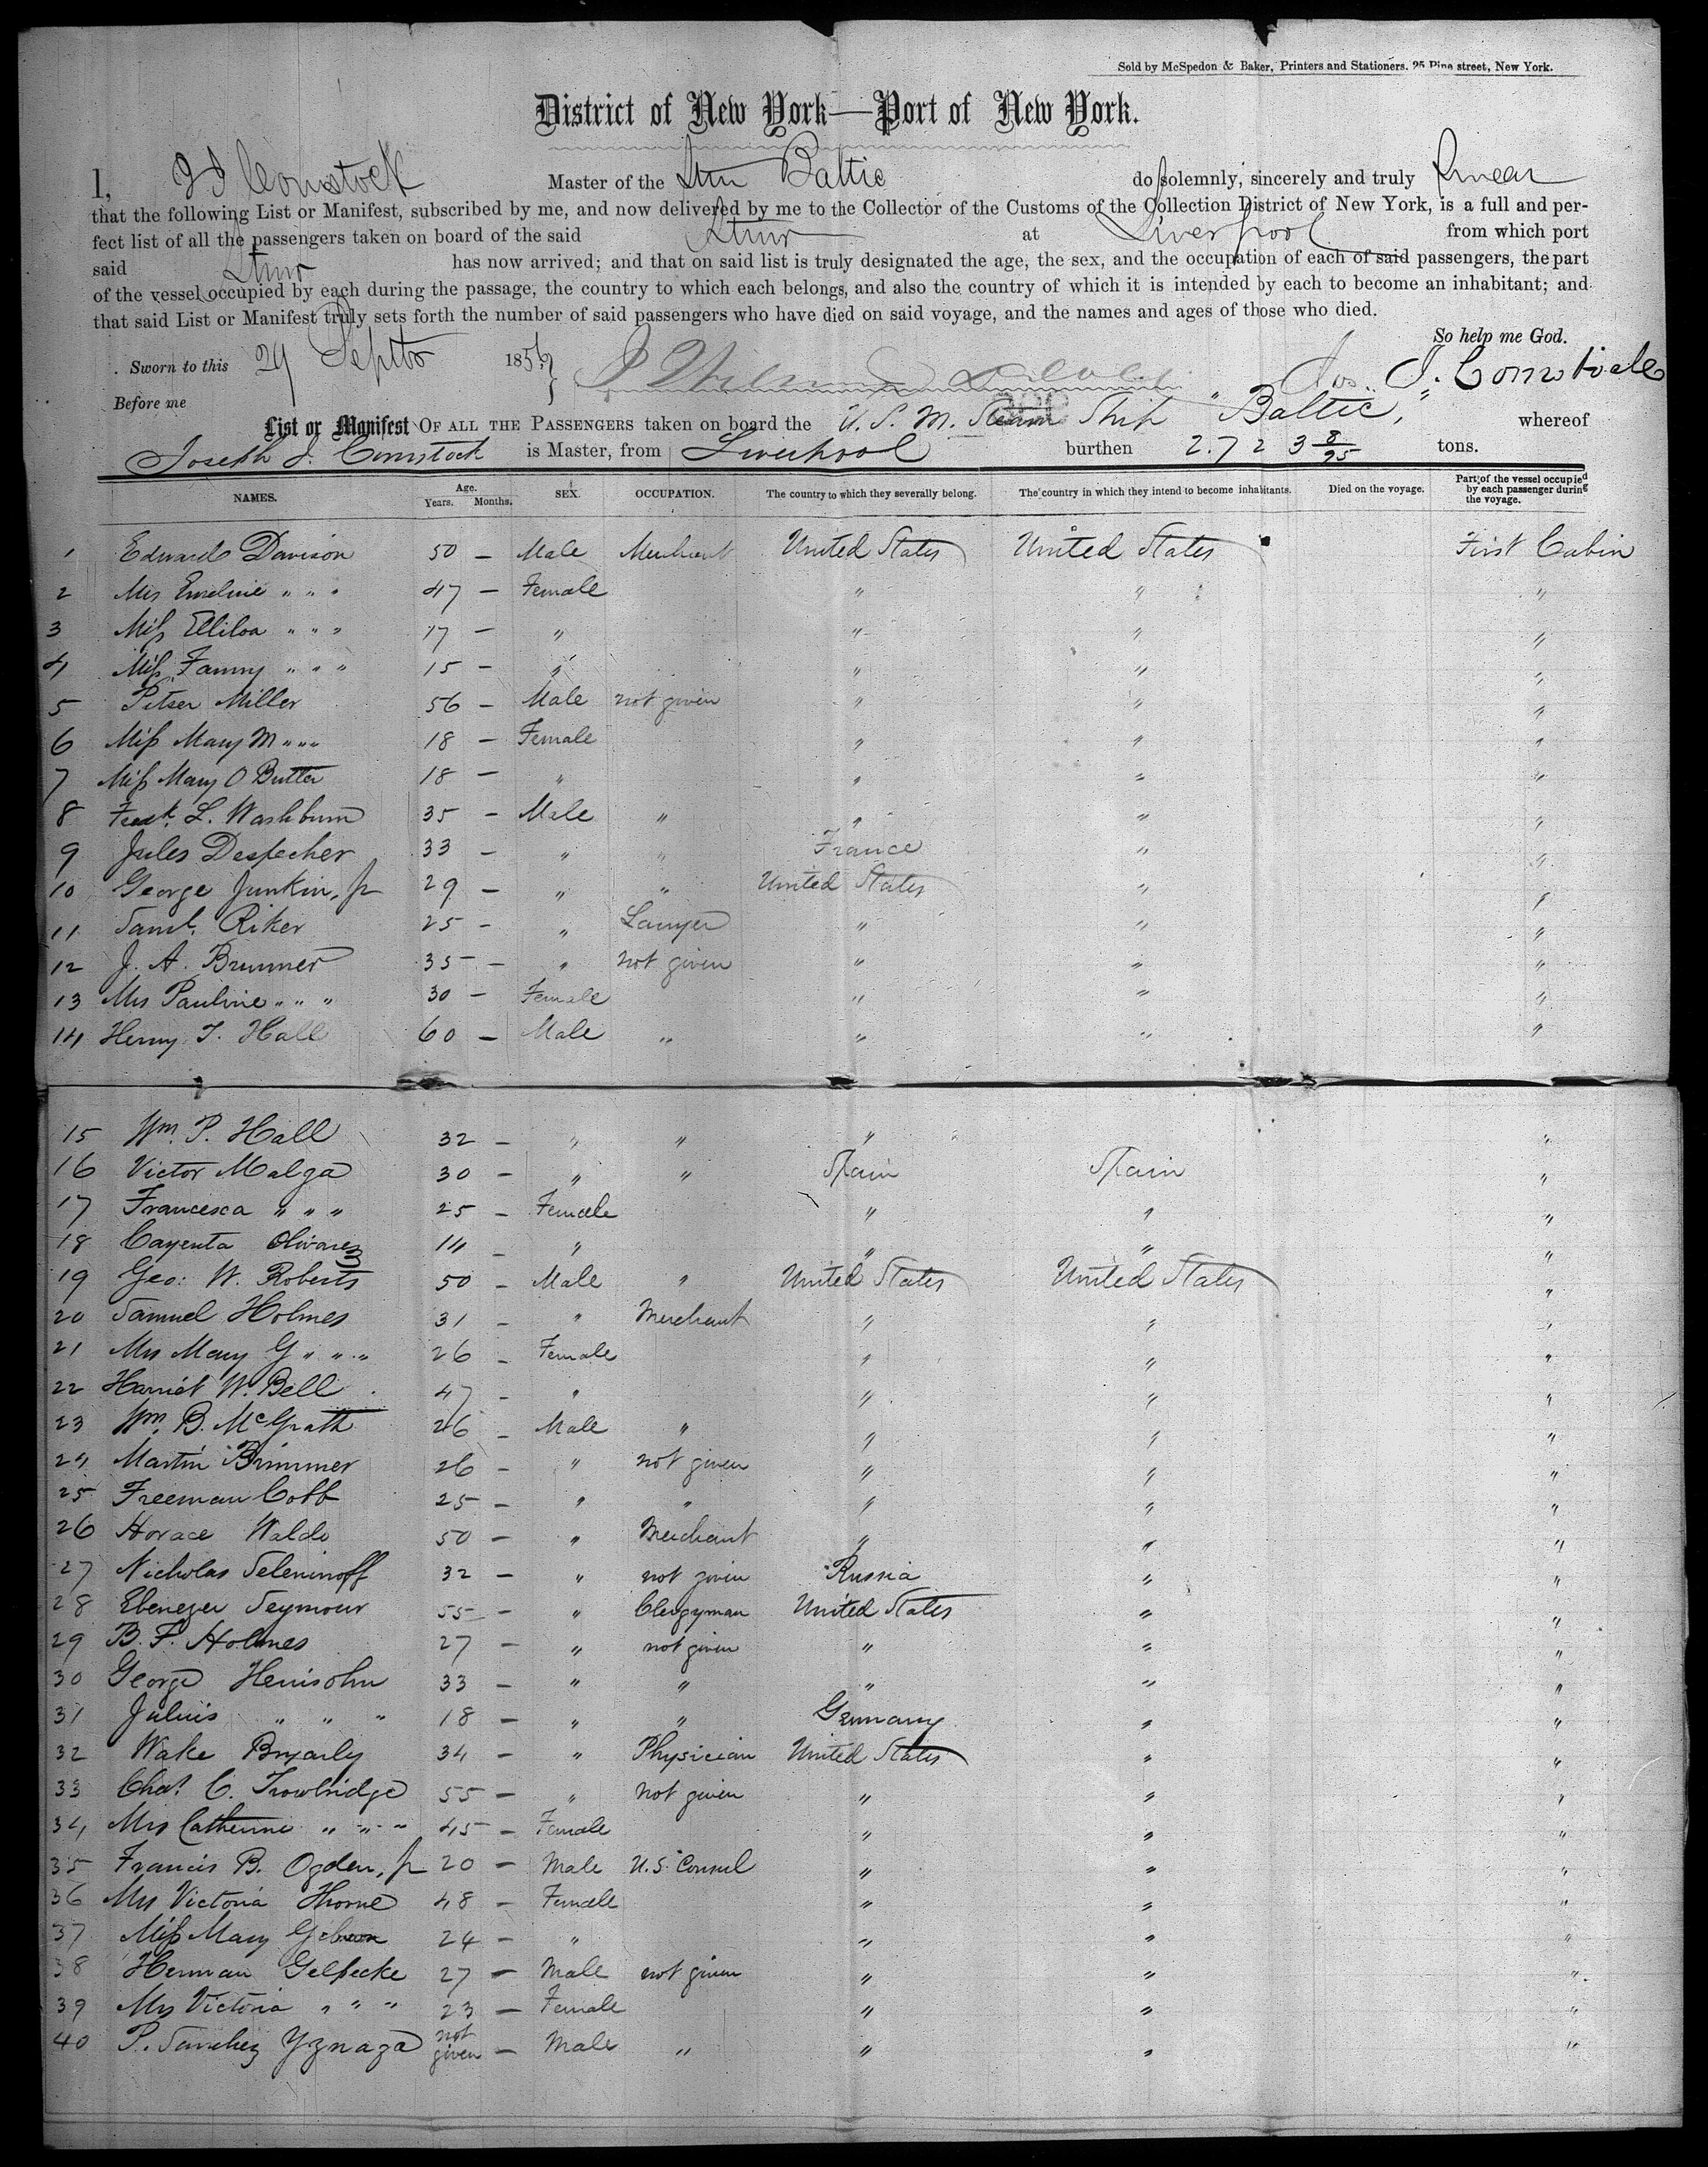 Sold by McSpedon & Baker, Printers and Stationers. 25 Pine street, New York.
District of New York—Port of New York.
I, J J Comstock Master of the Stmr Baltic do solemnly, sincerely and truly swear
that the following List or Manifest, subscribed by me, and now delivered by me to the Collector of the Customs of the Collection District of New York, is a full and per-
fect list of all the passengers taken on board of the said Stmr at Liverpool from which port
said Stmr has now arrived; and that on said list is truly designated the age, the sex, and the occupation of each of said passengers, the part
of the vessel occupied by each during the passage, the country to which each belongs, and also the country of which it is intended by each to become an inhabitant; and
that said List or Manifest truly sets forth the number of said passengers who have died on said voyage, and the names and ages of those who died.
So help me God.
Sworn to this 29 Septbr 1856 Jos. J. Comstock
Before me
List or Manifest OF ALL THE PASSENGERS taken on board the U. S. M. Steam Ship "Baltic," whereof
Joseph J. Comstock is Master, from Liverpool burthen 2.723 8/95 tons.
NAMES. Age. Years. Months. SEX. OCCUPATION. The country to which they severally belong. The country in which they intend to become inhabitants. Died on the voyage. Part of the vessel occupied by each passenger during the voyage.
1 Edward Davison 50 – Male Merchant United States United States First Cabin
2 Mrs Emeline " " " 47 – Female " " "
3 Miss " " " 17 – " " " "
4 Miss Fanny " " " 15 – " " " "
5 Pitser Miller 56 – Male not given " " "
6 Miss Mary M " " " 18 – Female " " "
7 Miss Mary O Butter 18 – " " " "
8 Fredk. L. Washburn 35 – Male " " " "
9 Jules Despecher 33 – " " France " "
10 George Junkin, Jr 29 – " " United States " "
11 Saml. Riker 25 – " Lawyer " " "
12 J. A. Brunner 35 – " not given " " "
13 Mrs Pauline " " " 30 – Female " " "
14 Henry T. Hall 60 – Male " " " "
15 Wm. P. Hall 32 – " " " "
16 Victor Malga 30 – " " Spain Spain "
17 Francesca " " " 25 – Female " " "
18 Cayenta Olivarez 14 – " " " "
19 Geo: W. Roberts 50 – Male " United States United States "
20 Samuel Holmes 31 – " Merchant " " "
21 Mrs Mary G " " " 26 – Female " " "
22 Harriet W. Bell 47 – " " " "
23 Wm. B. McGrath 26 – Male " " " "
24 Martin Brimmer 26 – " not given " " "
25 Freeman Cobb 25 – " " " " "
26 Horace Waldo 50 – " Merchant " " "
27 Nicholas Seleninoff 32 – " not given Russia " "
28 Ebenezer Seymour 55 – " Clergyman United States " "
29 B. F. Holmes 27 – " not given " " "
30 George Henisohn 33 – " " " " "
31 Julius " " " 18 – " " Germany " "
32 Wake Bryarly 34 – " Physician United States " "
33 Chas. C. Trowbridge 55 – " not given " " "
34 Mrs Catherine " " " 45 – Female " " "
35 Francis B. Ogden, Jr 20 – Male U.S. Consul " " "
36 Mrs Victoria Thorne 48 – Female " " "
37 Miss Mary Gibson 24 – " " " "
38 Herman Gelpecke 27 – Male not given " " "
39 Mrs Victoria " " " 23 – Female " " "
40 P. Sanchez Yznaga not given – Male " " " "